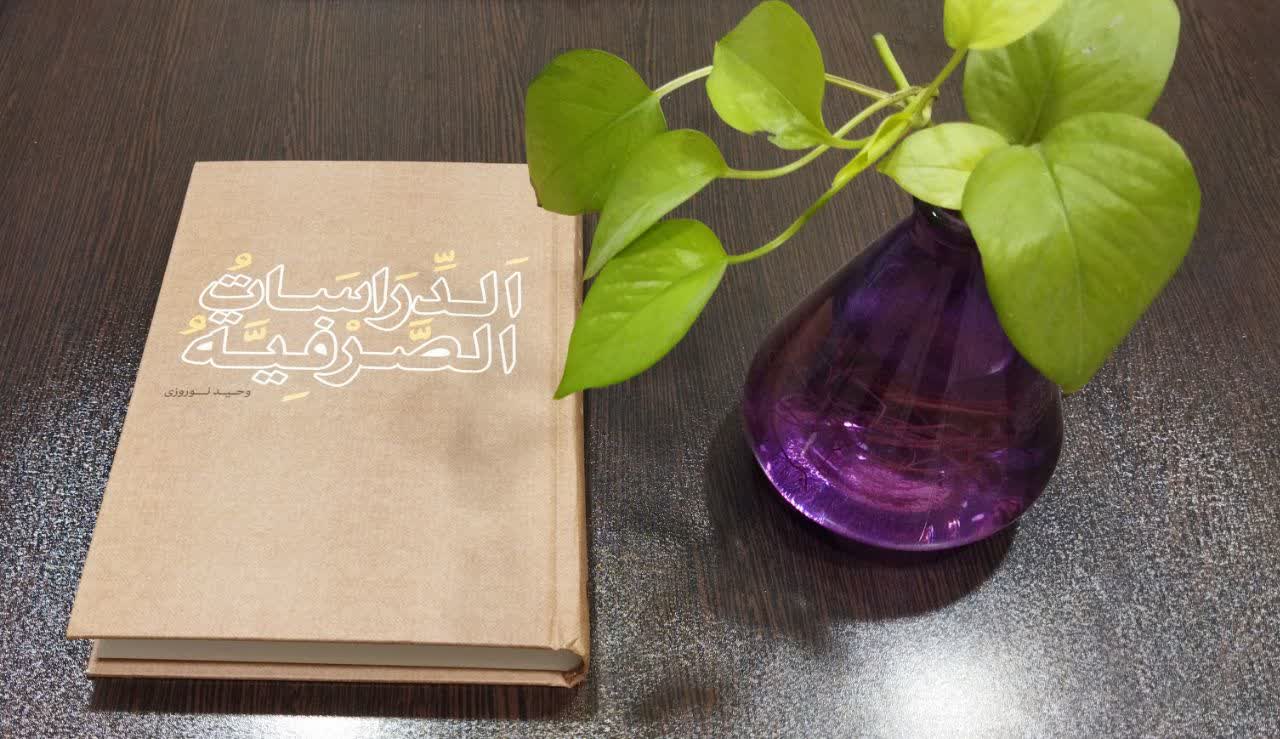 اَلدِّرَاسَاتُ
الصَّرْفِيَّهُ
وحید نوروزی